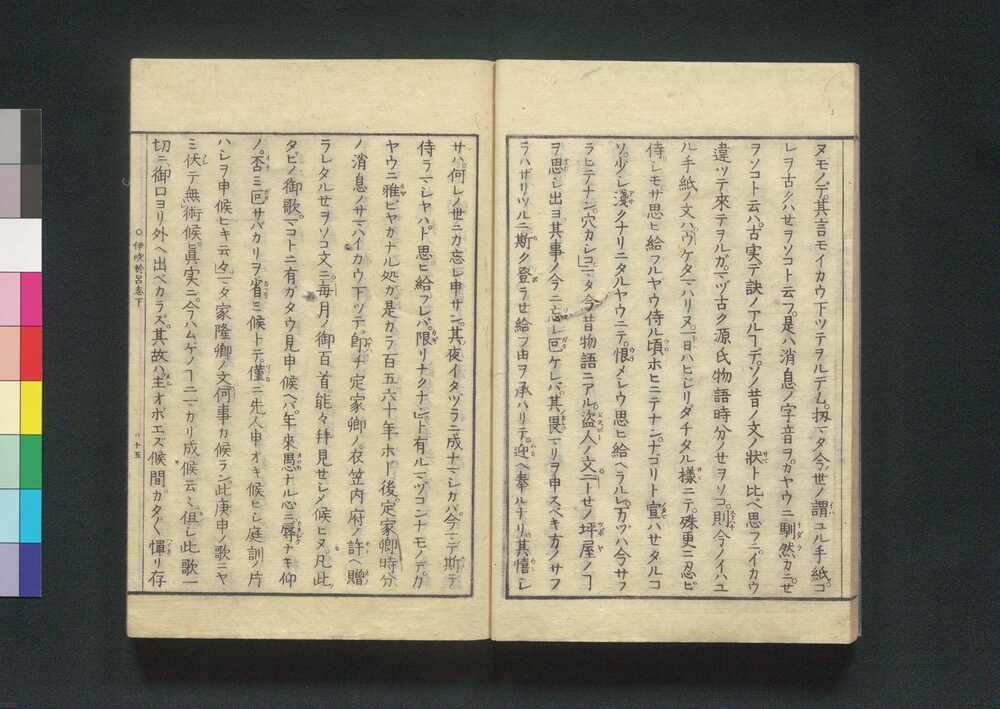 ヌモノデ。其言モイカウ下ツテヲルデム。扨マタ今ノ世ノ謂ユル手紙。コ
レヲ古クハせヲソコト云フ。是ハ消息ノ字音ヲ。カヤウニ馴然カニ。せ
ヲソコト云ハ。古実デ訣ノアルコデ。ソノ昔ノ文ノ狀ト比ベ思フニ。イカウ
違ツテ來テヲルガ。マヅ古ク源氏物語時分ノせヲソコ。則今ノイハユ
ル手紙ノ文ハ。ウケタマハリヌ。一日ハヒレリダチタル樣ニテ。殊更ニ忍ビ
侍レモサ思ヒ給フルヤウ侍ル頃ホヒニテナン。ナコリト宣ハせタルコ
ソ。少レ淺クナリニタルヤウニテ。恨メレウ思ヒ給ヘラルレ。万ツハ今サフ
ラヒテナン。穴カレコ。マタ今昔物語ニアル。盜人ノ文ニ。トせノ坪屋ノコ
ヲ思レ出ヨ。其事ノ今ニ忘レ回ケレバ。其畏マリヲ申スベキ方ノサフ
ラハザリツルニ。斯ク登ラせ給フ由ヲ承ハリテ。迎ヘ奉ルナリ。其憘レ
サハ。何レノ世ニカ忘レ申サン。其夜イタヅラニ成ナマシカバ。今マデ斯テ
侍ラマシヤハ。ト思ヒ給フレバ。限リナクナン。ト有ル。マヅコンナモノデ。カ
ヤウニ雅ビヤカナル処ガ。是カラ百五六十年ホド後。定家卿時分
ノ消息ノサマハ。イカウ下ツテ。卽チ定家卿ノ衣笠内府ノ許ヘ贈
ラレタルせヲソコ文ニ。毎月ノ御百首能々拜見せレメ候ヒヌ。凡此
タビノ御歌。マコトニ有ガタウ見申候ヘバ。年來愚ナル心ニ。辱ナキ仰
ノ。否ミ回サバカリヲ省ミ候トテ。僅ニ先人申オキ候ヒシ庭訓ノ片
ハシヲ申候ヒキ云々。マタ家隆卿ノ文。何事カ候ラン。此庚申ノ歌ニヤ
ミ伏テ無術候。眞実ニ今ハムゲノコニマカリ成候云々。但レ此歌一
切ニ御口ヨリ外ヘ出ベカラズ。其故ハ主オボエズ候間。カタ〴〵憚リ存
○伊吹於呂志下
○十五